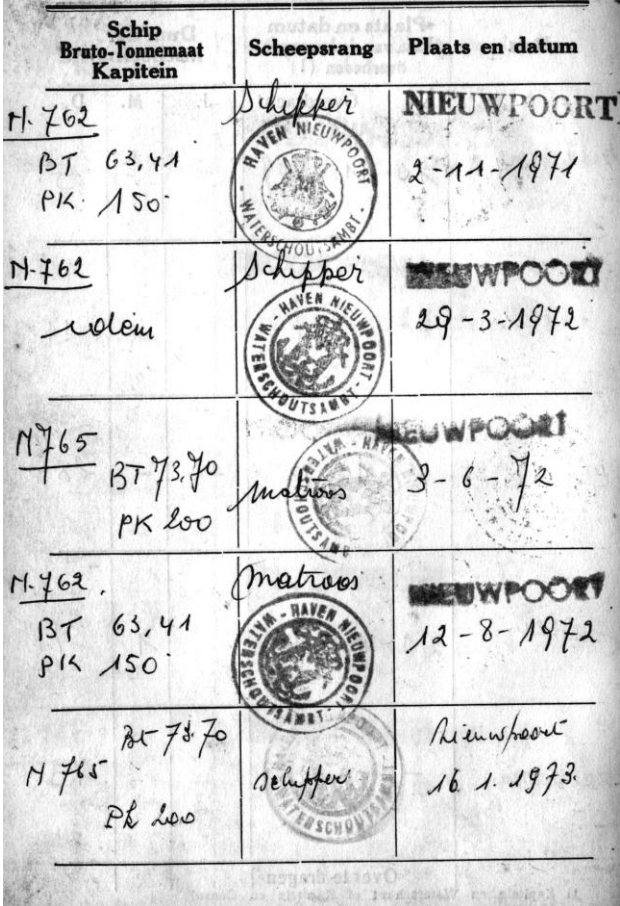 Schip
Bruto-Tonnemaat
Kapitein
Scheepsrang
Plaats en datum
N. 762
BT 63,41
PK. 150
Schipper
HAVEN NIEUWPOORT
WATERSCHOUTSAMBT
NIEUWPOORT
2-11-1971
N-762
idem
Schipper
HAVEN NIEUWPOORT
WATERSCHOUTSAMBT
NIEUWPOORT
29-3-1972
N765
BT 73,70
PK 200
matroos
NIEUWPOORT
3-6-72
N. 762.
BT 63,41
PK 150
matroos
HAVEN NIEUWPOORT
WATERSCHOUTSAMBT
NIEUWPOORT
12-8-1972
Bt 73.70
N 765
Pk 200
schipper
WATERSCHOUTSAMBT
Nieuwpoort
16.1.1973.